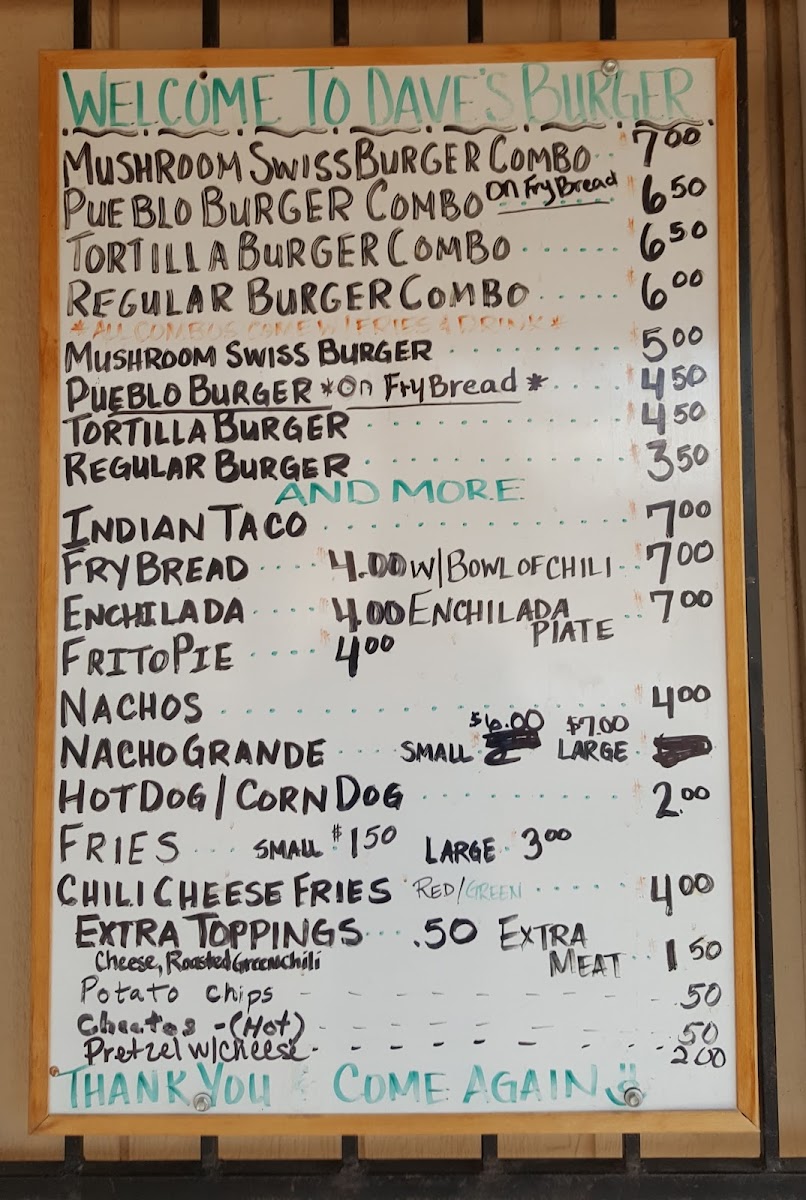 WELCOME TO DAVE'S BURGER
MUSHROOM SWISS BURGER COMBO $7.00
PUEBLO BURGER COMBO On Fry Bread $6.50
TORTILLA BURGER COMBO $6.50
REGULAR BURGER COMBO $6.00
*ALL COMBOS COME W/ FRIES & DRINK*
MUSHROOM SWISS BURGER $5.00
PUEBLO BURGER *On Fry Bread* $4.50
TORTILLA BURGER $4.50
REGULAR BURGER $3.50
AND MORE
INDIAN TACO $7.00
FRY BREAD $4.00 W/BOWL OF CHILI $7.00
ENCHILADA $4.00 ENCHILADA PLATE $7.00
FRITO PIE $4.00
NACHOS $4.00
NACHO GRANDE SMALL $6.00 LARGE $7.00
HOT DOG / CORN DOG 2.00
FRIES SMALL $1.50 LARGE 3.00
CHILI CHEESE FRIES RED/GREEN 4.00
EXTRA TOPPINGS .50 EXTRA MEAT 1.50
Cheese, Roasted Green Chili
Potato chips .50
Cheetos - (Hot) .50
Pretzel w/cheese 2.00
THANK YOU COME AGAIN